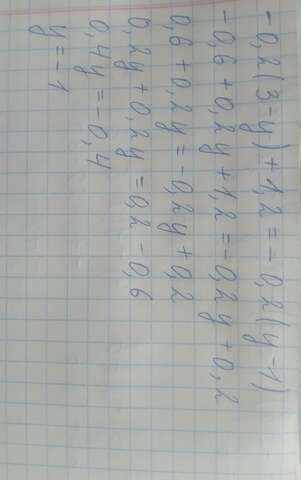 -0,2(3-y)+1,2=-0,2(y-1)
-0,6+0,2y+1,2=-0,2y+0,2
0,6+0,2y=-0,2y+0,2
0,2y+0,2y=0,2-0,6
0,4y=-0,4
y=-1